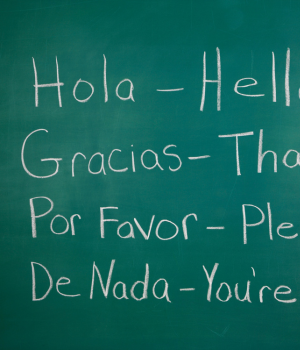 Hola – Hell
Gracias – Tha
Por Favor – Ple
De Nada – You're